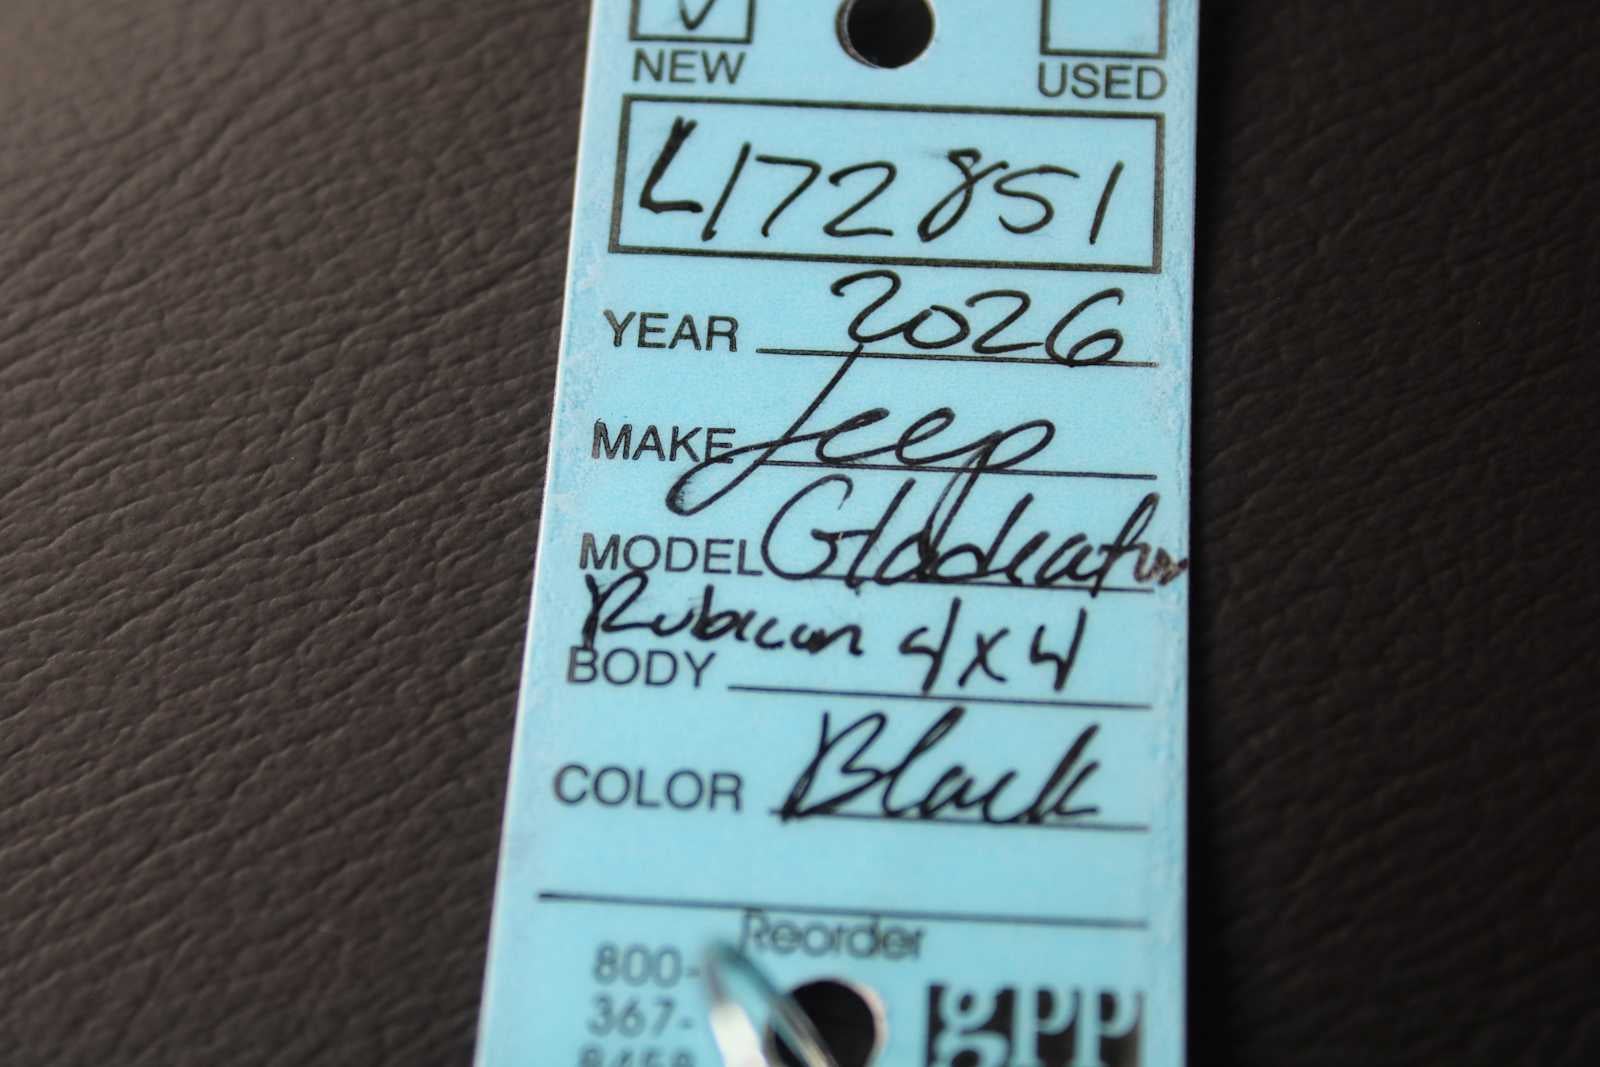 NEW USED
L172851
YEAR 2026
MAKE Jeep
MODEL Gladiator
Rubicon 4x4
BODY
COLOR Black
Reorder
800-
367-
8458
gpp